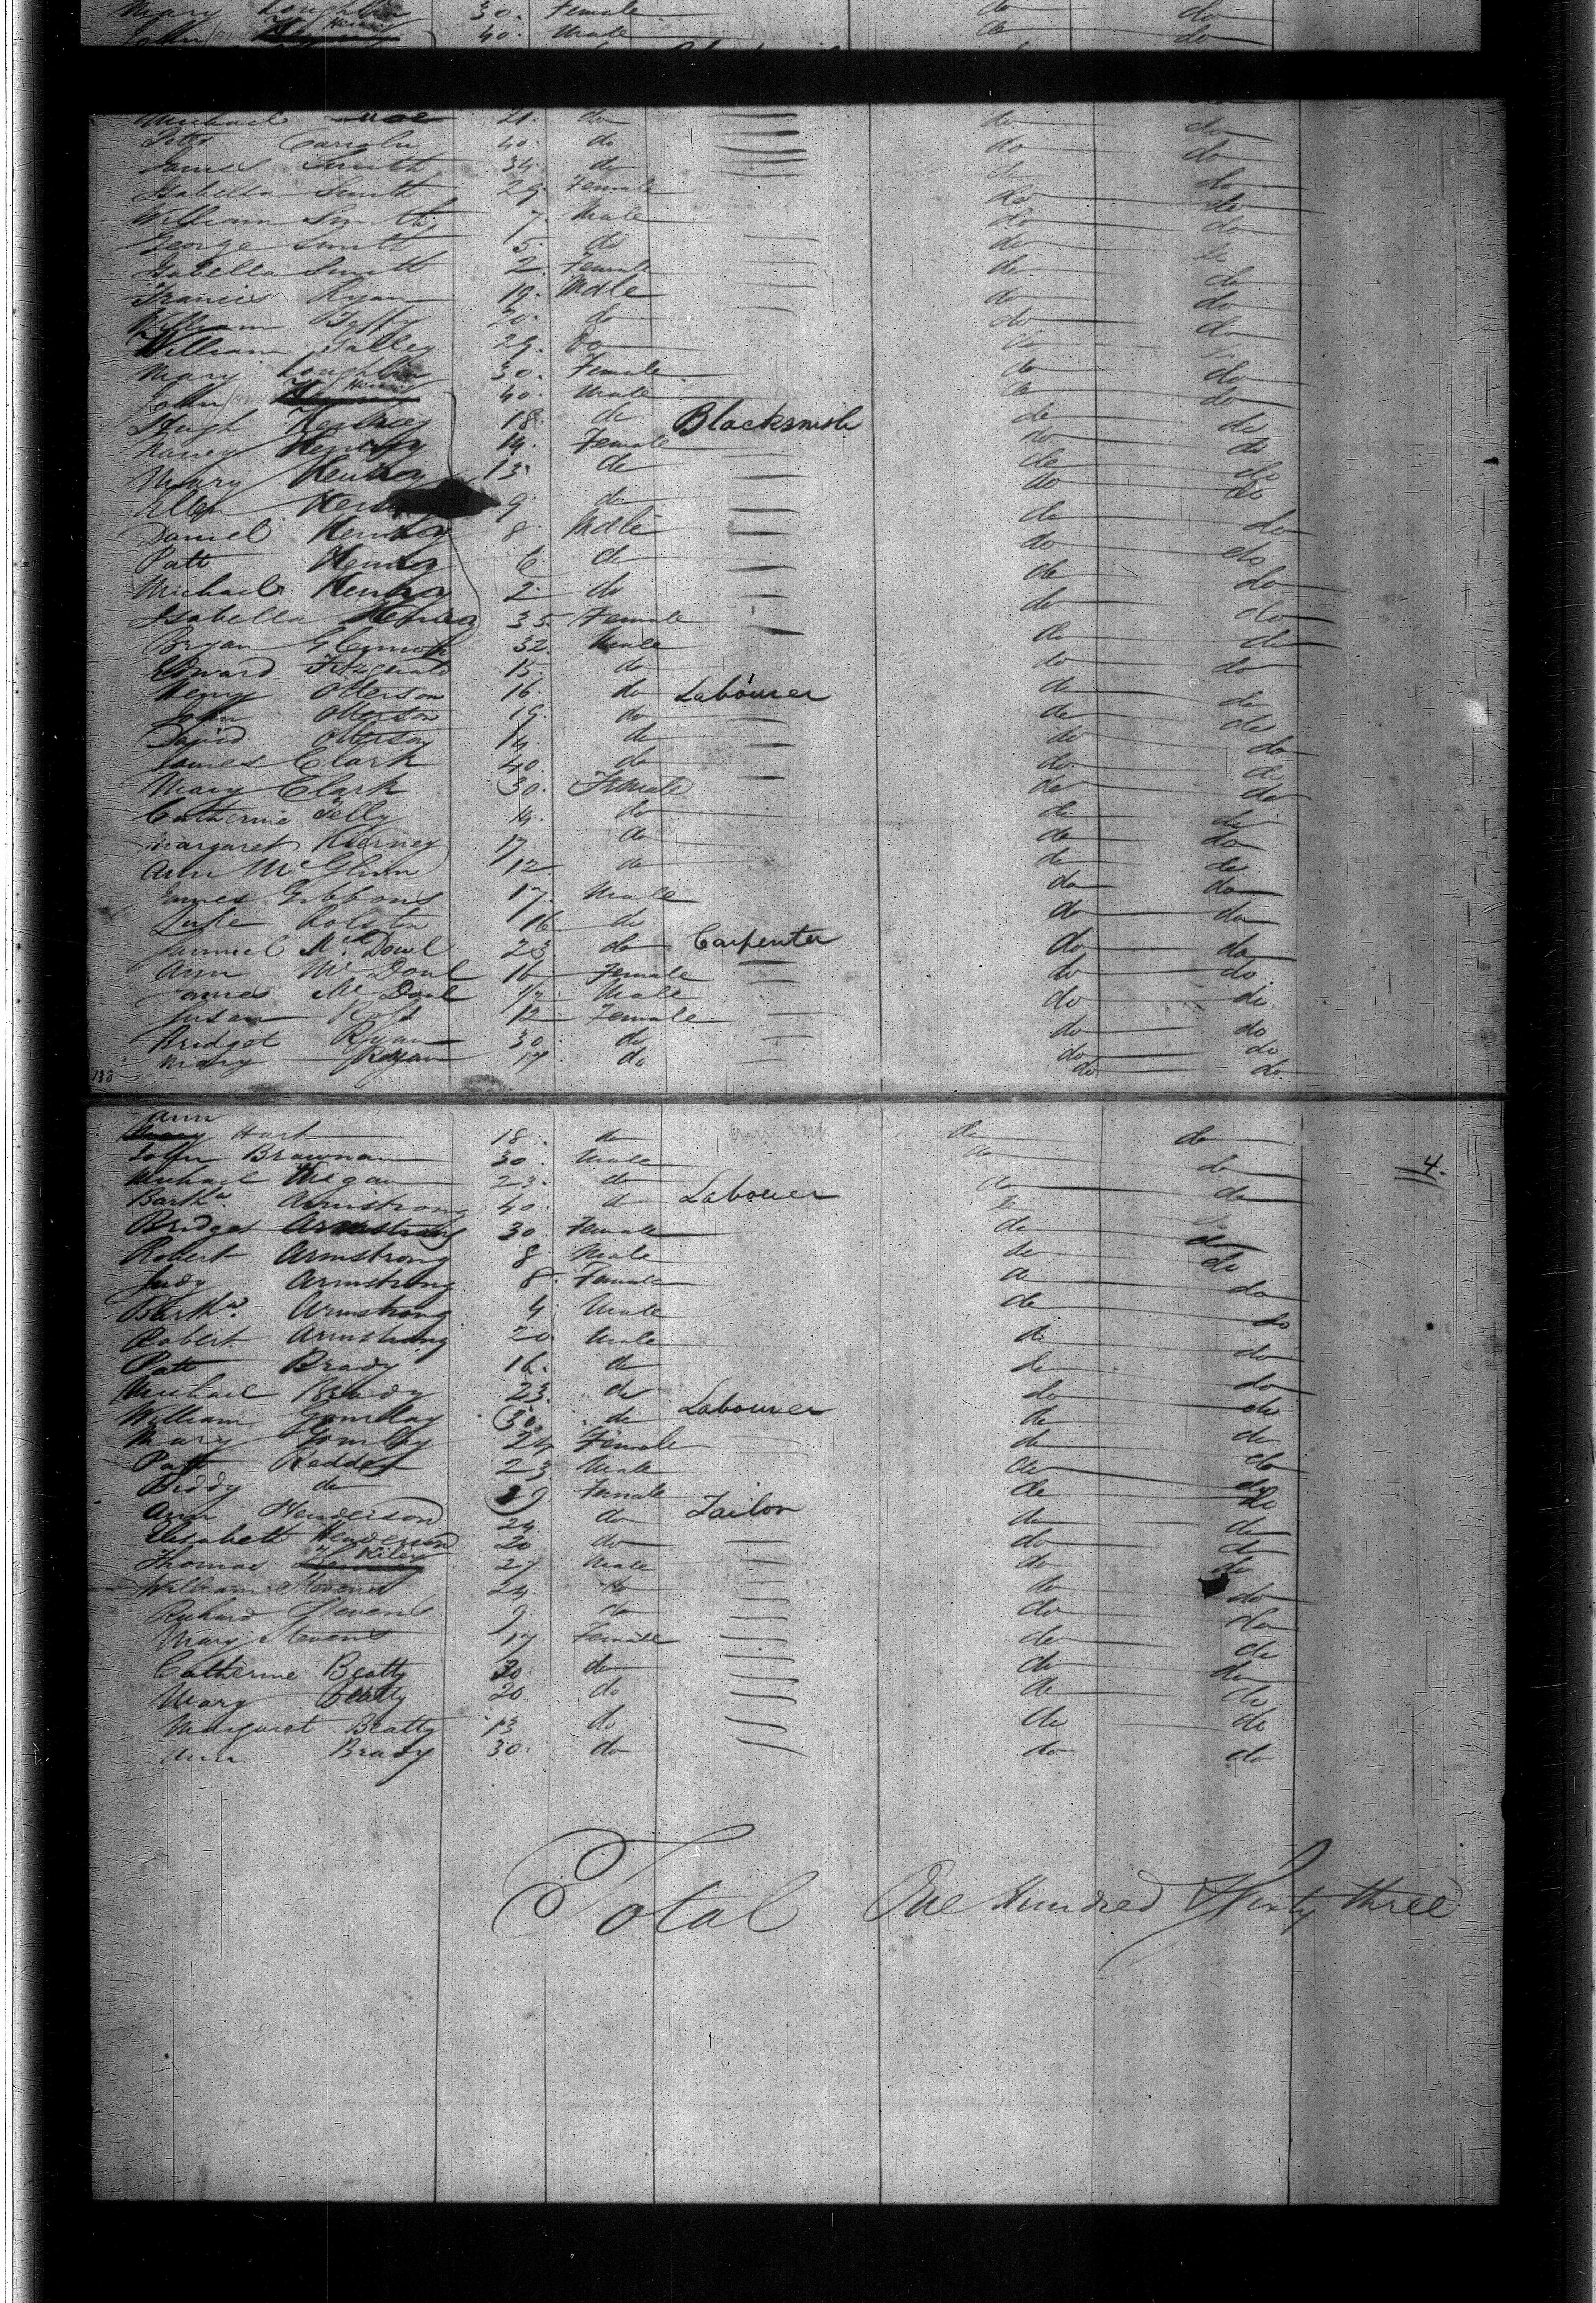 Mary Loughlin 30. Female do do
John James Henry 40. Male do do
Michael 21. do do do
Peter 40. do do do
James Smith 34. do do do
Isabella Smith 29. Female do do
William Smith 7. Male do do
George Smith 5. do do do
Isabella Smith 2. Female do do
Francis Ryan 19. Male do do
William 20. do do do
William Galley 29. Do do do
Mary Loughlin 30. Female do do
John James Henry 40. Male do do
Hugh 18. do Blacksmith do do
Nancy 14. Female do do
Mary 13 do do do
Ellen 9. do do do
Daniel 8. Male do do
Patt 6. do do do
Michael 2. do do do
Isabella 35. Female do do
Bryan 32. Male do do
Edward Fitzgerald 15. do do do
Henry Otterson 16. do Labourer do do
John Otterson 19. do do do
David Otterson 14. do do do
James Clark 40. do do do
Mary Clark 30. Female do do
Catherine Felly 14. do do do
Margaret Kierney 17 do do do
Ann McGlinn 12. do do do
James Gibbons 17. Male do do
Luke Rolston 16. do do do
Samuel McDoul 23. do Carpenter do do
Ann McDoul 16 Female do do
James McDoul Male do do
Susan 12 Female do do
Bridget Ryan 30. do do do
Mary Ryan 17 do do do
138
Ann Hart 18. do do do
John Brawnan 30. Male do do
4.
Michael Wigan 23. do do do
Barthw. Armstrong 40. do Labourer do do
Bridget Armstrong 30. Female do do
Robert Armstrong 8. Male do do
Judy Armstrong 8. Female do do
Barthw. Armstrong 4. Male do do
Robert Armstrong 20. Male do do
Patt Brady 16. do do do
Michael Brady 23. do do do
William Gomlay 30. do Labourer do do
Mary Gomlay 24 Female do do
Patt Redden 23 Male do do
Biddy do Female do do
Ann Henderson 24 do Tailor do do
Elisabeth Henderson 20 do do do
Thomas Kiley 27 Male do do
William Stevens 24. do do do
Richard Stevens 9. do do do
Mary Stevens 17 Female do do
Catherine Beatty 30. do do do
Mary Beatty 20. do do do
Margaret Beatty 13 do do do
Ann Brady 30. do do do
Total One Hundred & Sixty three